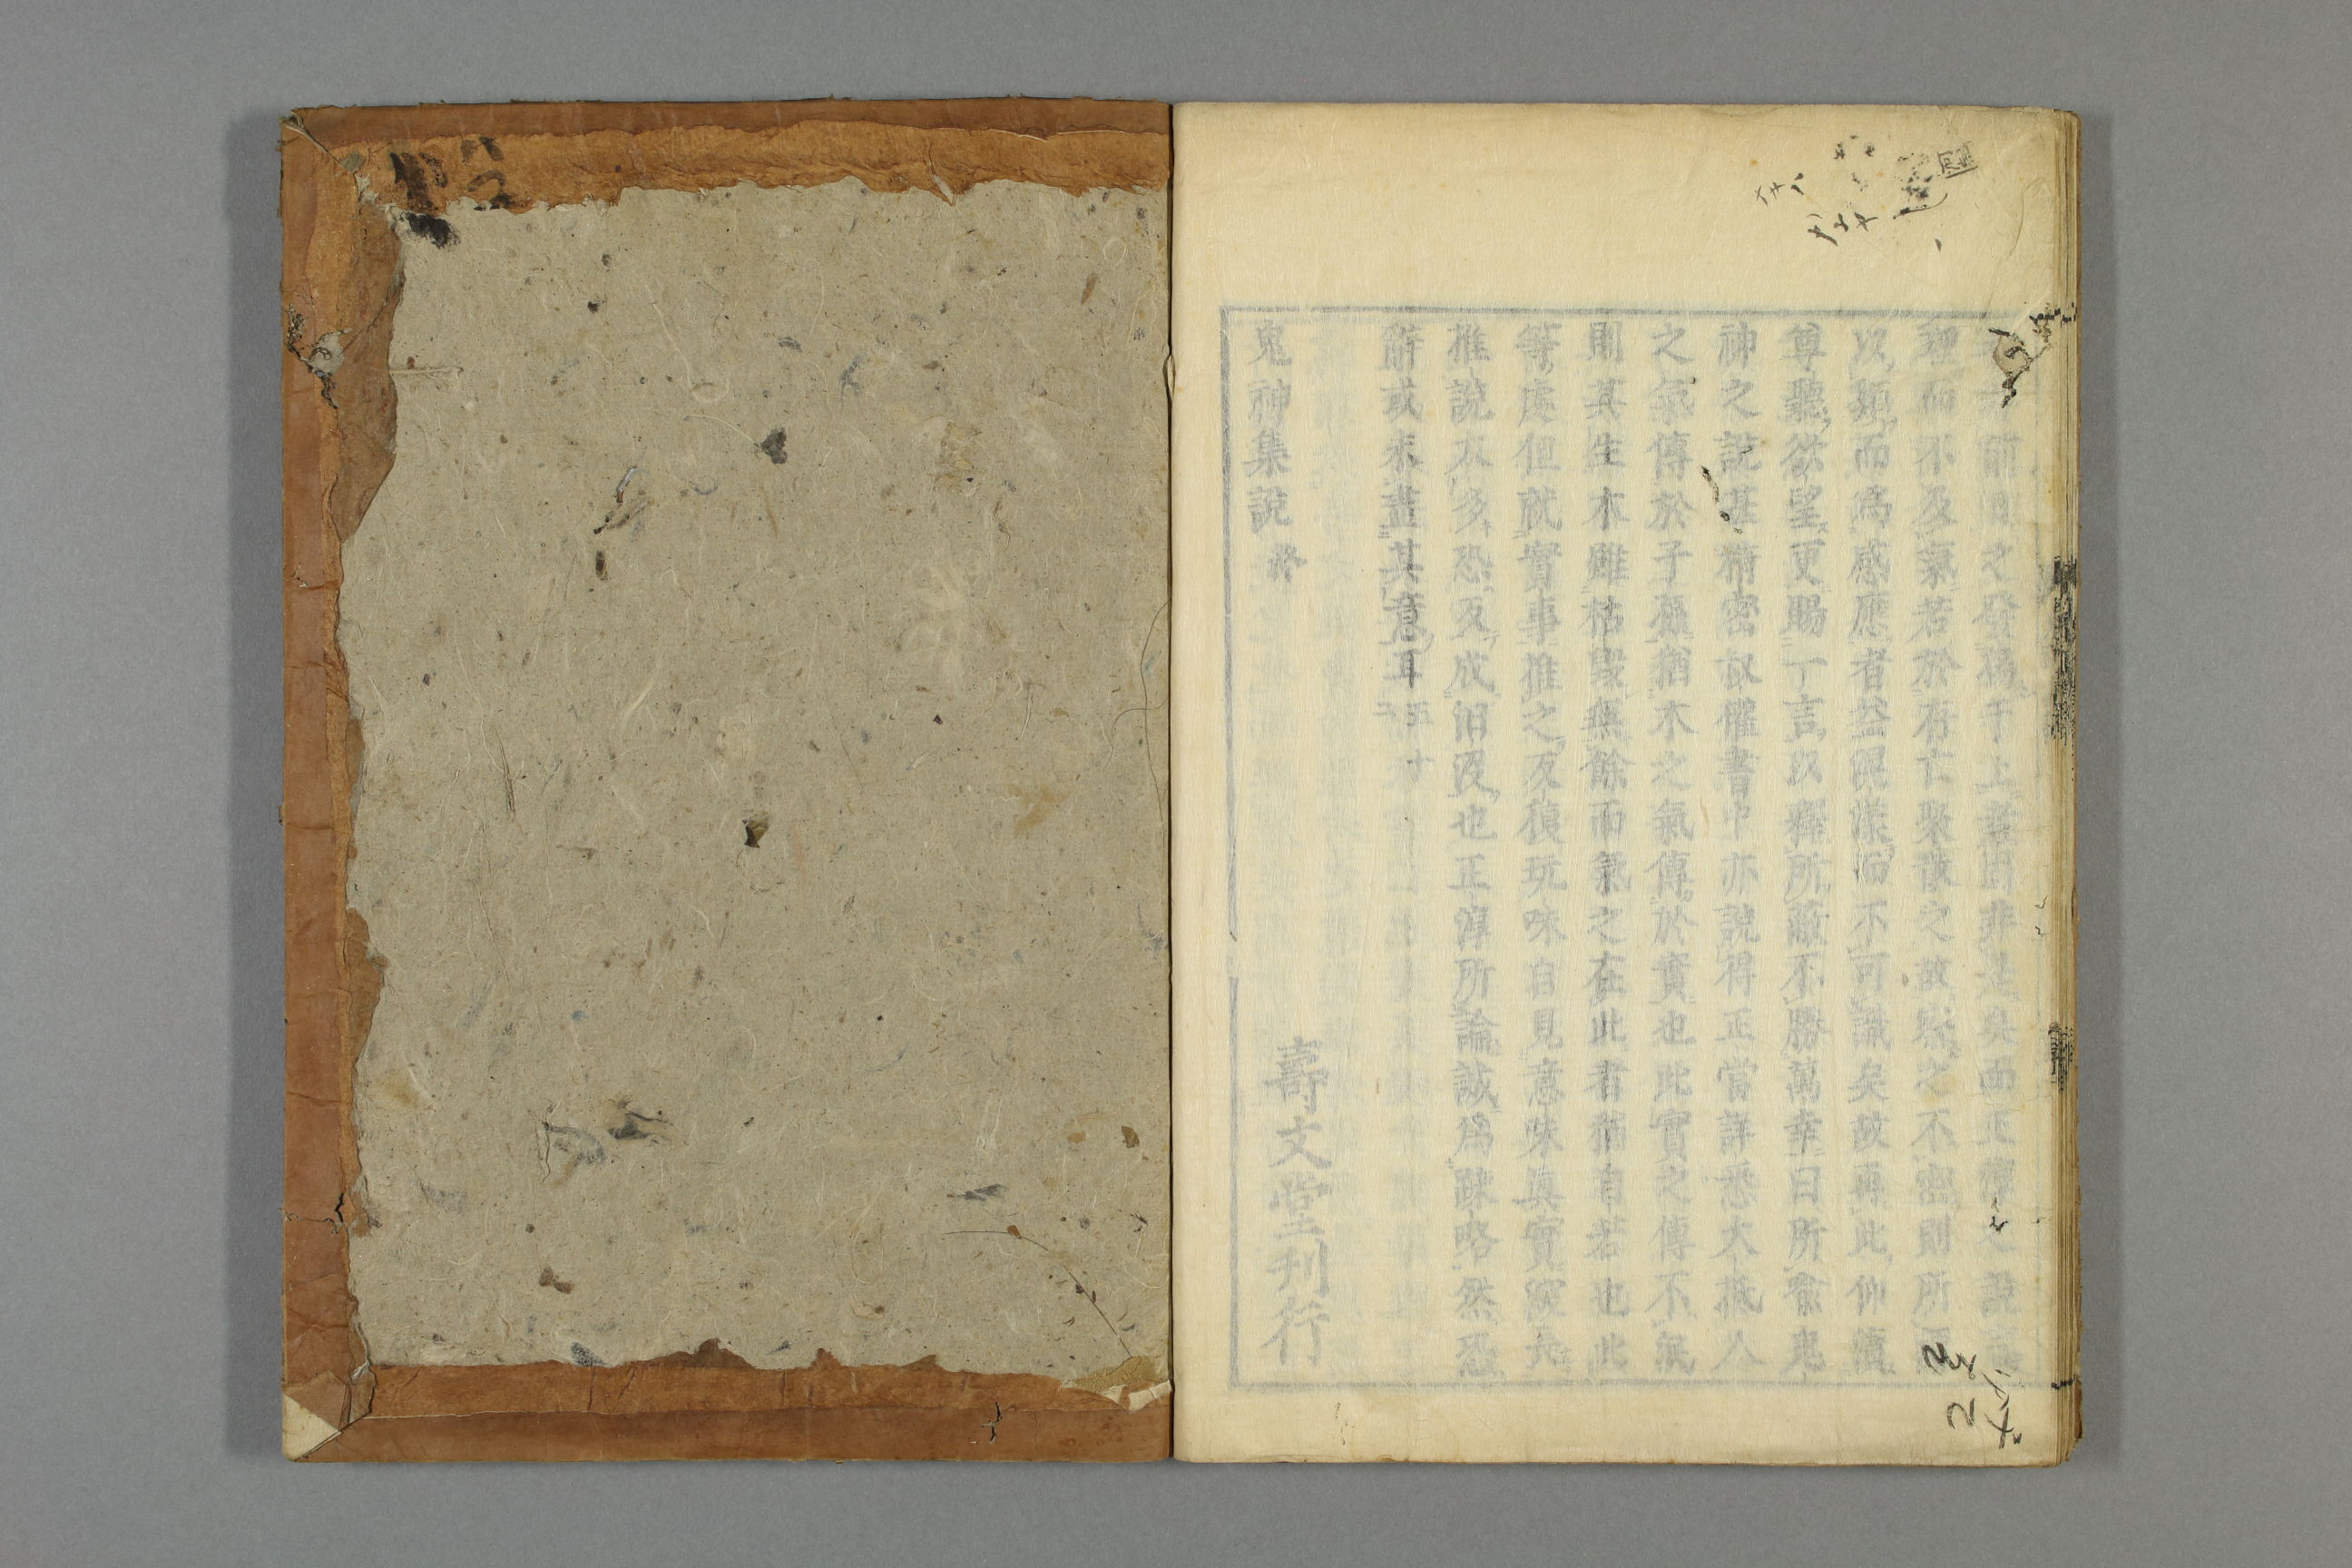 前日之發稿于上者固非是矣而正淳之說
理而不及氣若於有亡聚散之故察之不密則所
以類而爲感應者益滉漾而不可識矣故再此仰瀆
尊聽欲望更賜一言以釋所蔽不勝萬幸曰所喩鬼
神之說甚精密叔權書中亦說得正當詳悉大抵人
之氣傳於子孫猶木之氣傳於實也此實之傳不泯
則其生木雖枯毀無餘而氣之在此者猶自若也此
等處但就實事推之反復玩味自見意味眞實深長
推說太多恐反成汩沒也正淳所論誠爲踈略然恐
辭或未盡其意耳 五十
鬼神集說 終
壽文堂刊行